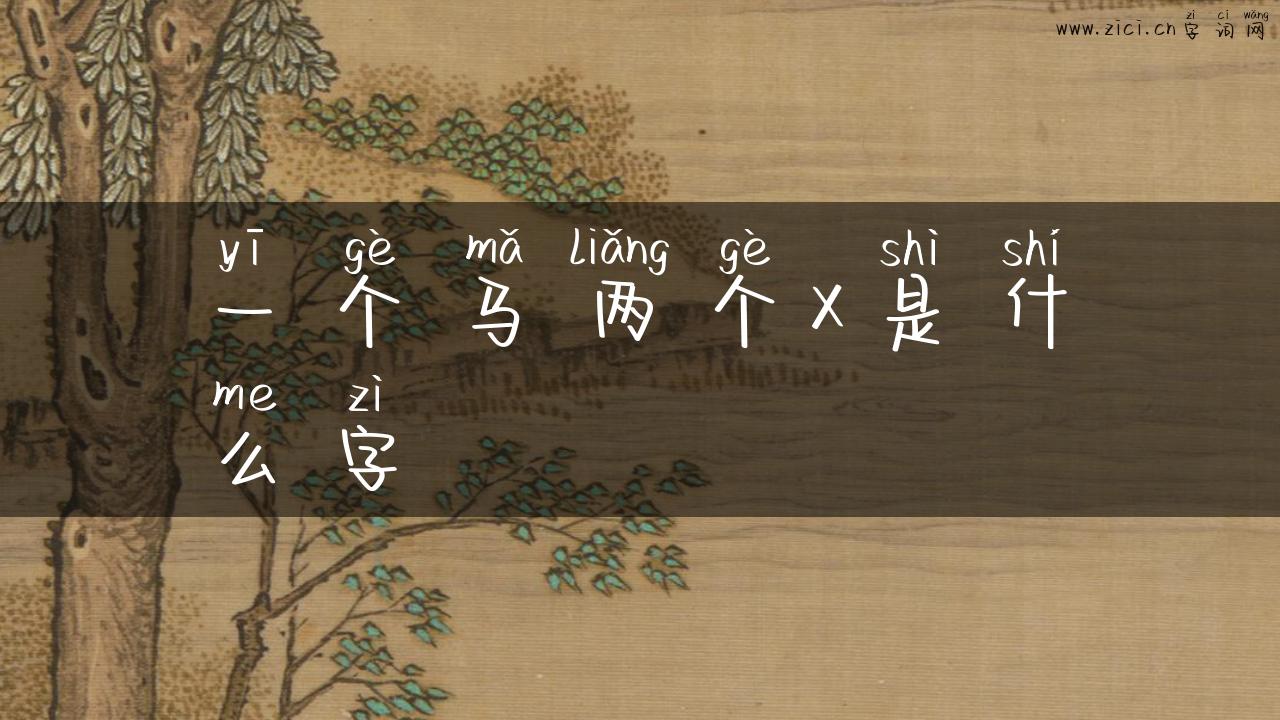 zì cí wǎng
www.zici.cn 字词网
yī gè mǎ liǎng gè shì shí
一个马两个X是什
me zì
么字